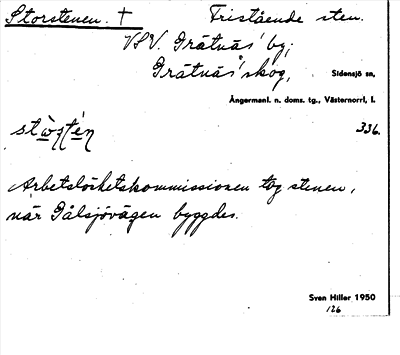 Storstenen. † Fristående sten.
VSV. Gråtnäs' by;
Gråtnäs' skog, Sidensjö sn,
Ångermanl. n. doms. tg., Västernorrl. l.
stò̀rstén 336.
Arbetslöshetskommissionen tog stenen,
när Gålsjövägen byggdes.
Sven Hiller 1950
126